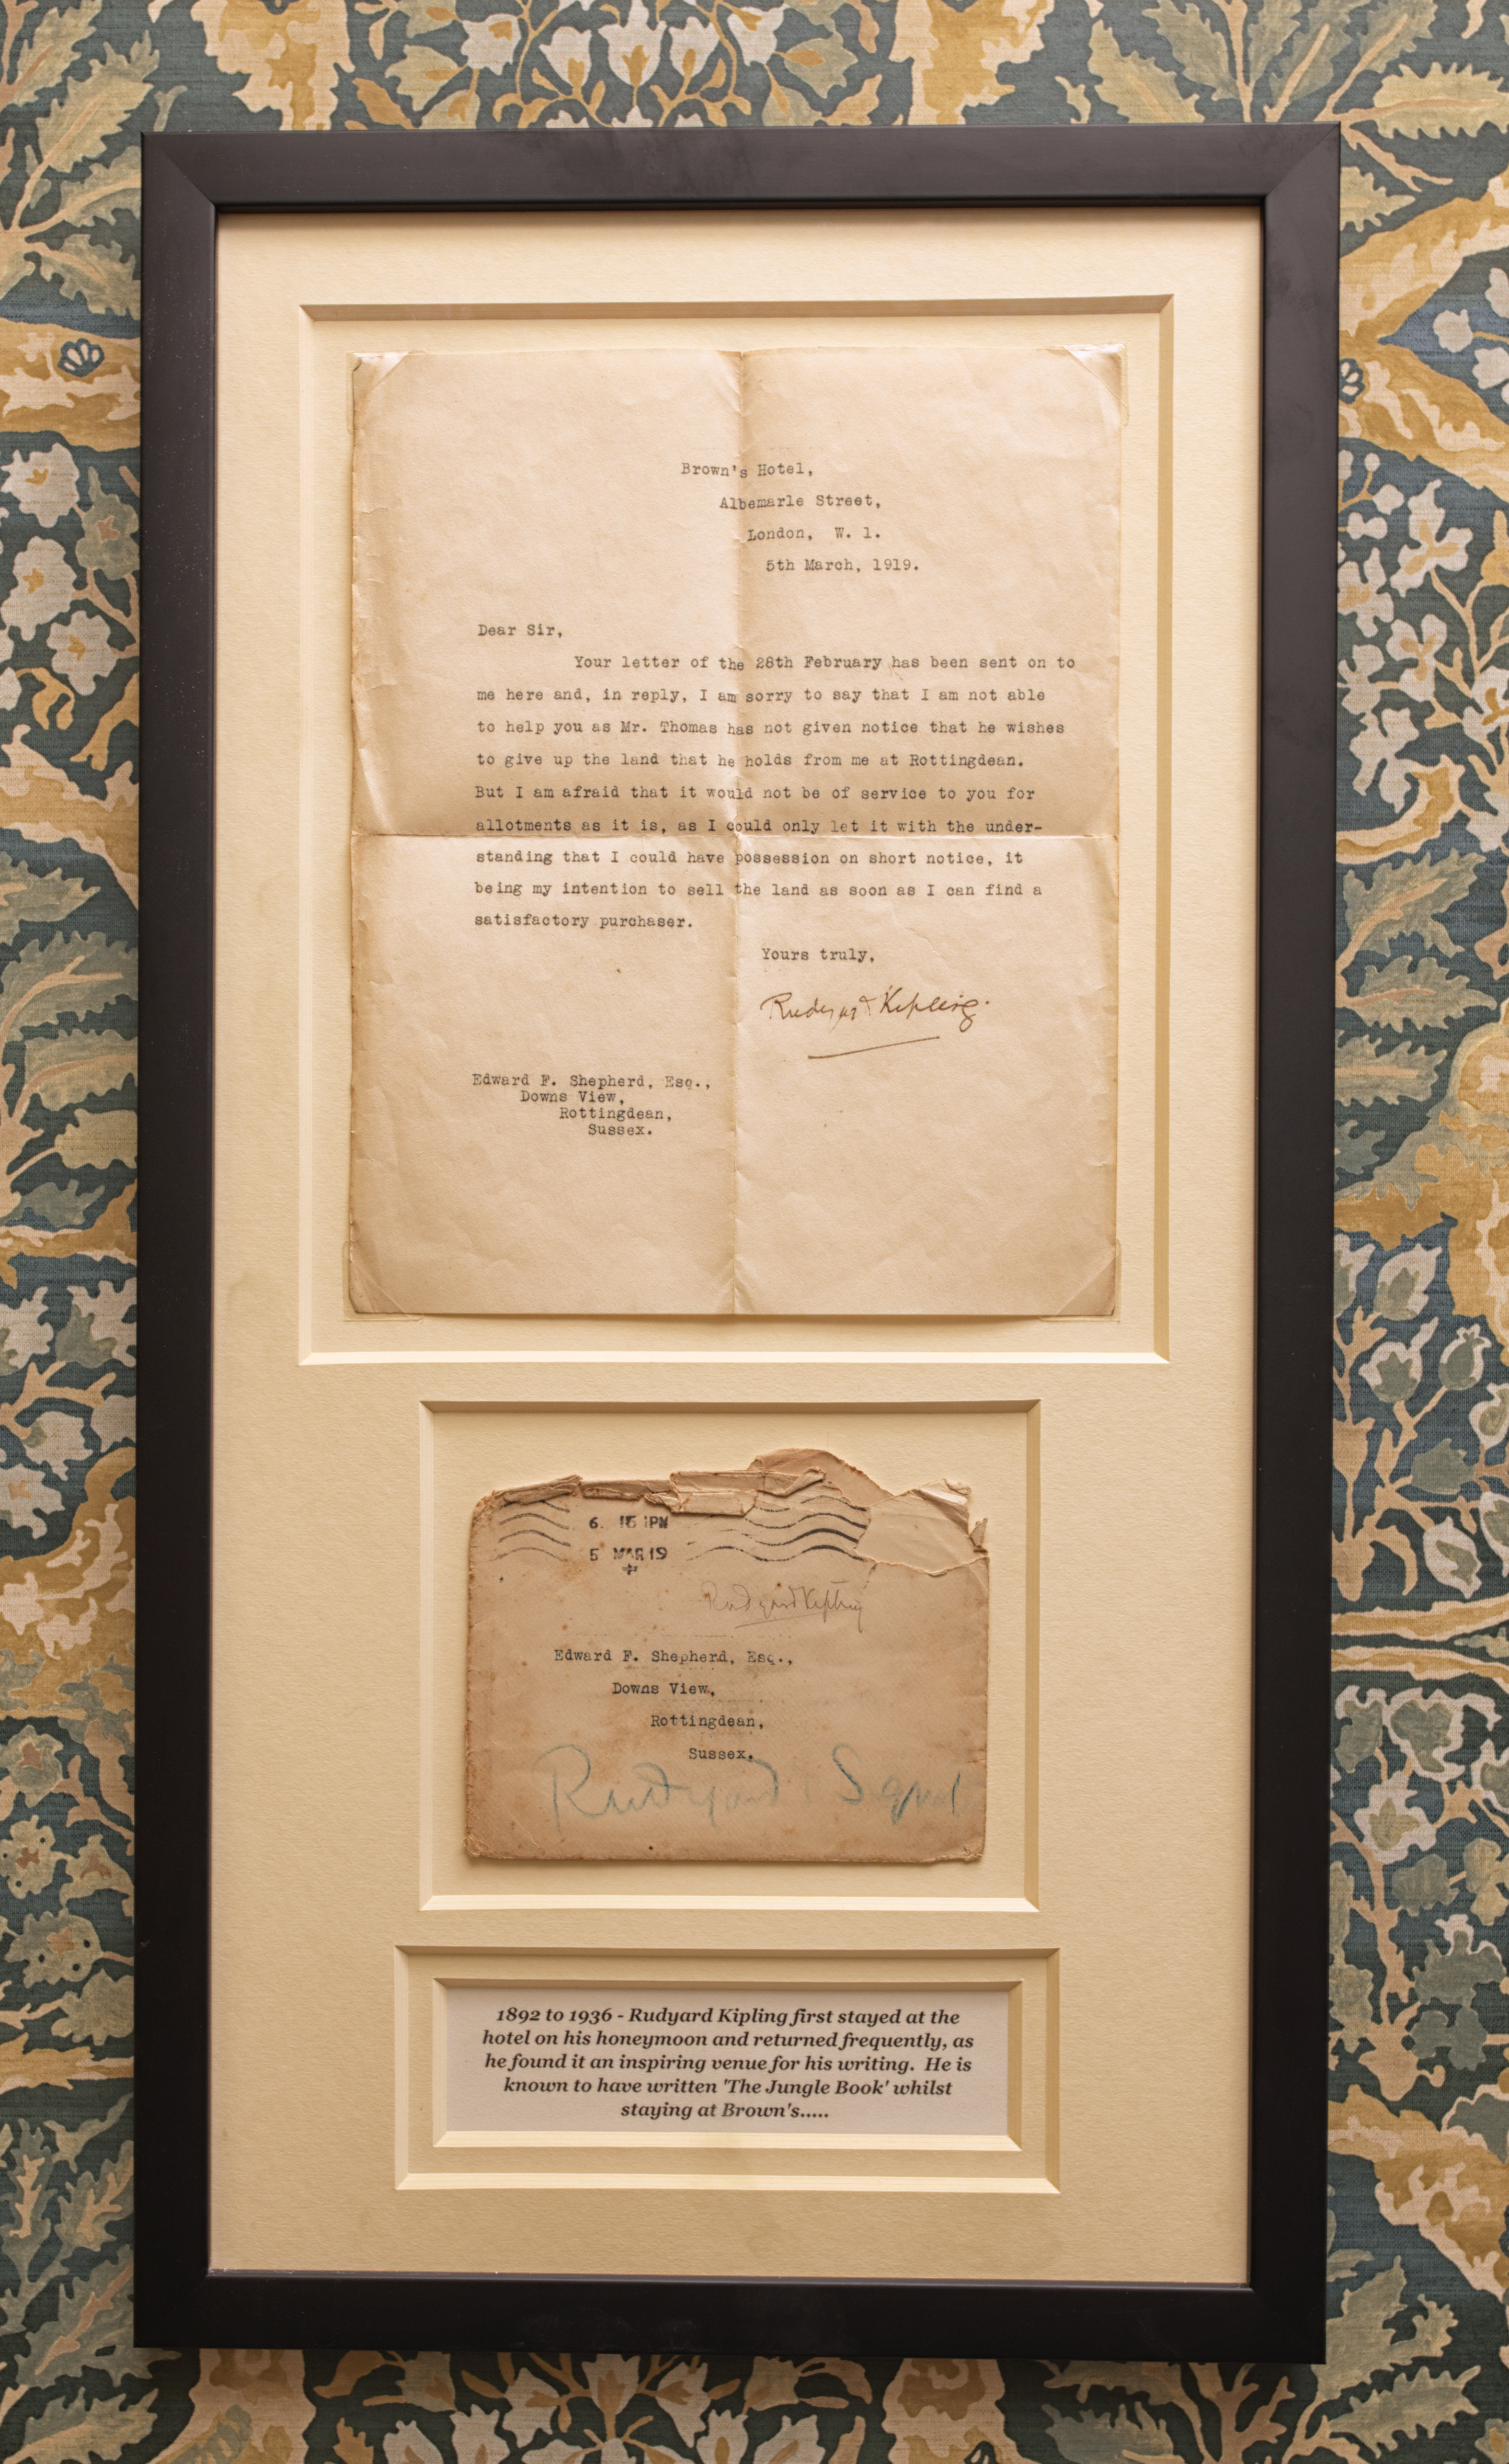 Brown's Hotel,
Albemarle Street,
London, W. 1.
5th March, 1919.
Dear Sir,
Your letter of the 28th February has been sent on to
me here and, in reply, I am sorry to say that I am not able
to help you as Mr. Thomas has not given notice that he wishes
to give up the land that he holds from me at Rottingdean.
But I am afraid that it would not be of service to you for
allotments as it is, as I could only let it with the under-
standing that I could have possession on short notice, it
being my intention to sell the land as soon as I can find a
satisfactory purchaser.
Yours truly,
Rudyard Kipling.
Edward F. Shepherd, Esq.,
Downs View,
Rottingdean,
Sussex.
6. 15 PM
5 MAR 19
Rudyard Kipling
Edward F. Shepherd, Esq.,
Downs View,
Rottingdean,
Sussex.
Rudyard
1892 to 1936 - Rudyard Kipling first stayed at the
hotel on his honeymoon and returned frequently, as
he found it an inspiring venue for his writing. He is
known to have written 'The Jungle Book' whilst
staying at Brown's.....